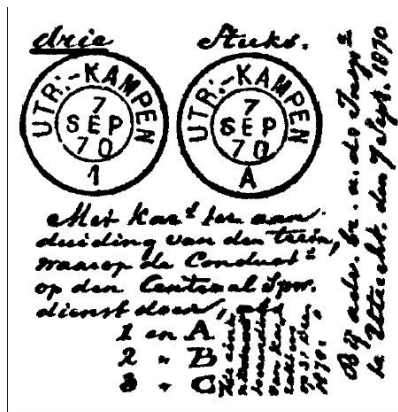 drie Stuks.
UTR:-KAMPEN
7
SEP
70
1
UTR:-KAMPEN
7
SEP
70
A
Met kar^t ter aan
duiding van den trein,
waarop de Conduct^s
op den Centraal Spw.
dienst doen,
1 en A
2 " B
3 " C
Bij adv. br. a. de Insp^n
te Utrecht. den 7 Sept. 1870